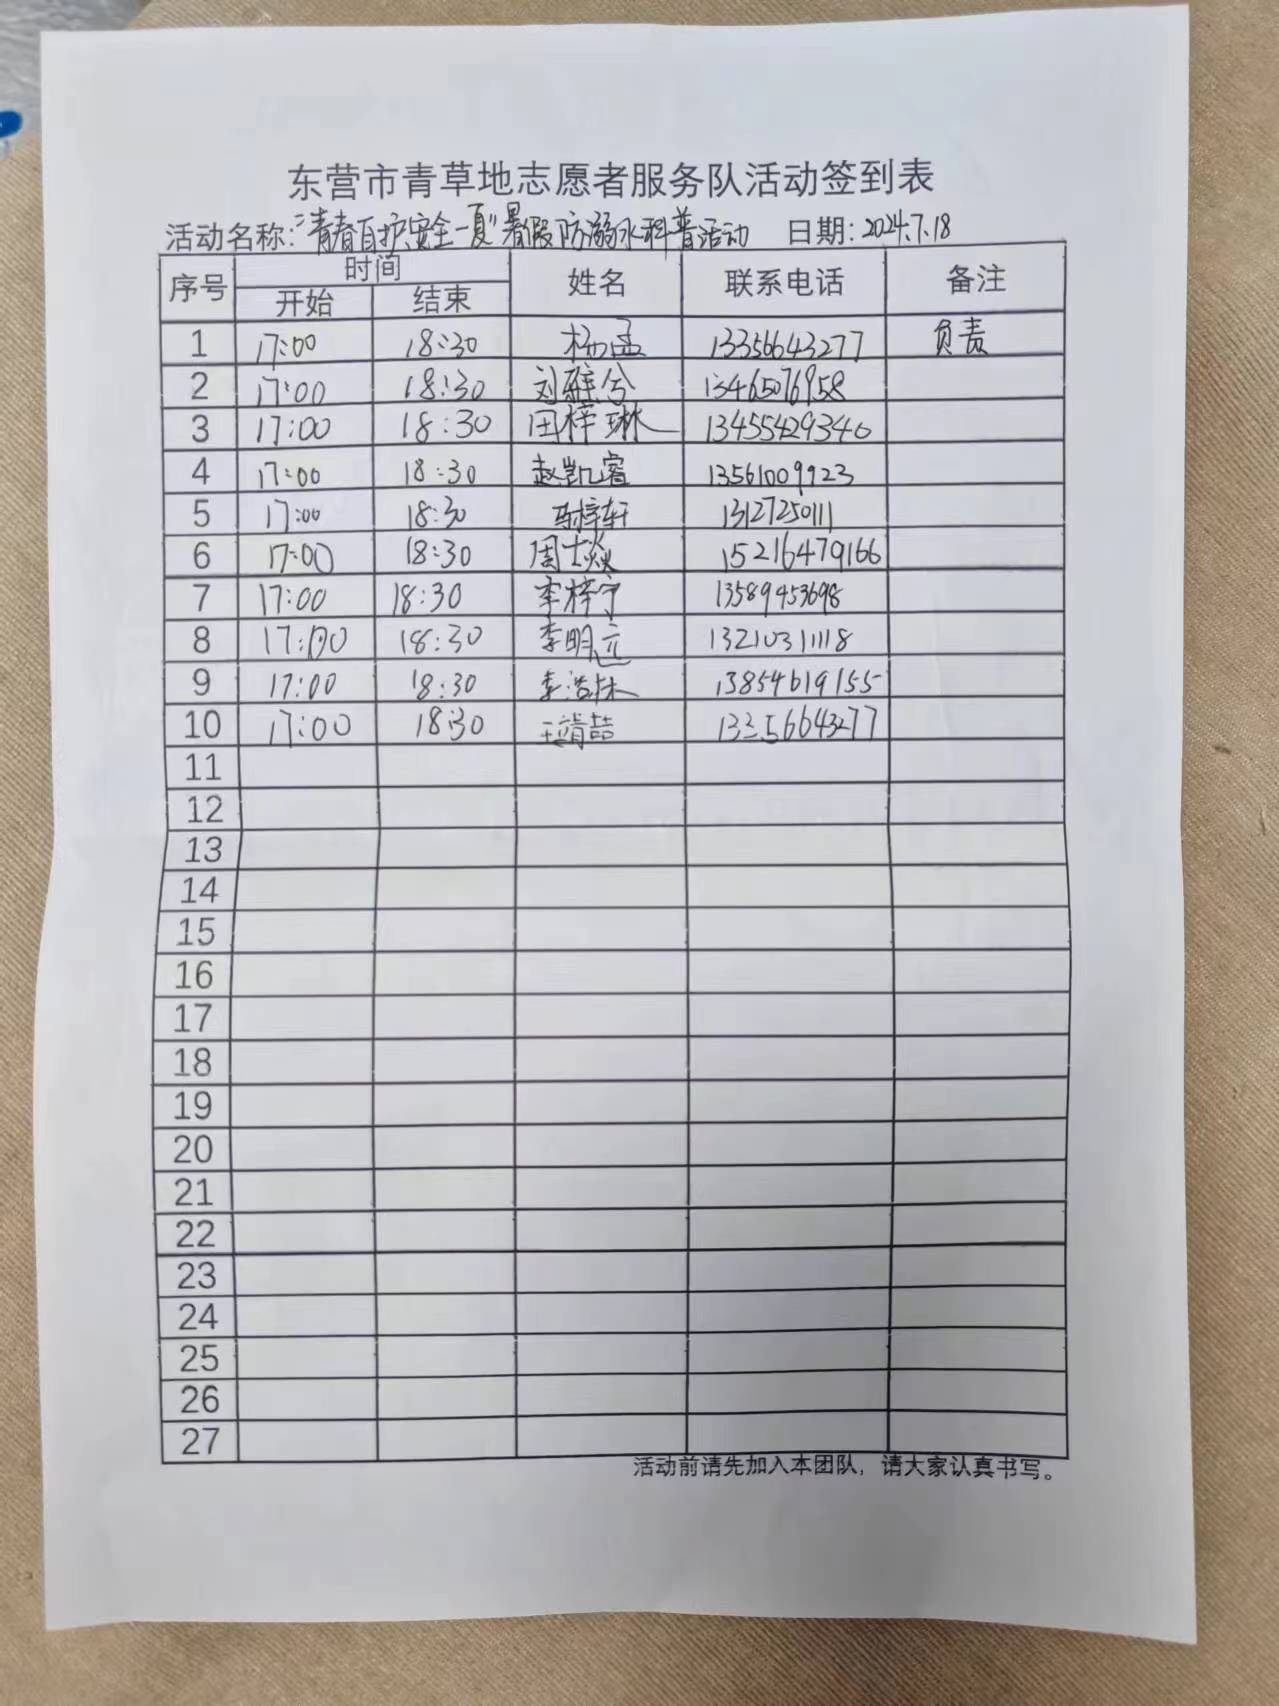 东营市青草地志愿者服务队活动签到表
活动名称:“青春自护安全一夏”暑假防溺水科普活动 日期:2024.7.18
序号 时间 姓名 联系电话 备注
开始 结束
1 17:00 18:30 杨孟 13356643277 负责
2 17:00 18:30 刘雅兮 13465076958
3 17:00 18:30 田梓琳 13455429340
4 17:00 18:30 赵凯睿 13561009923
5 17:00 18:30 梓轩 13127250111
6 17:00 18:30 周士焱 15216479166
7 17:00 18:30 李梓宁 13589453698
8 17:00 18:30 李明远 13210311118
9 17:00 18:30 李浩林 13854619155
10 17:00 18:30 王喆 13356643277
11
12
13
14
15
16
17
18
19
20
21
22
23
24
25
26
27
活动前请先加入本团队，请大家认真书写。